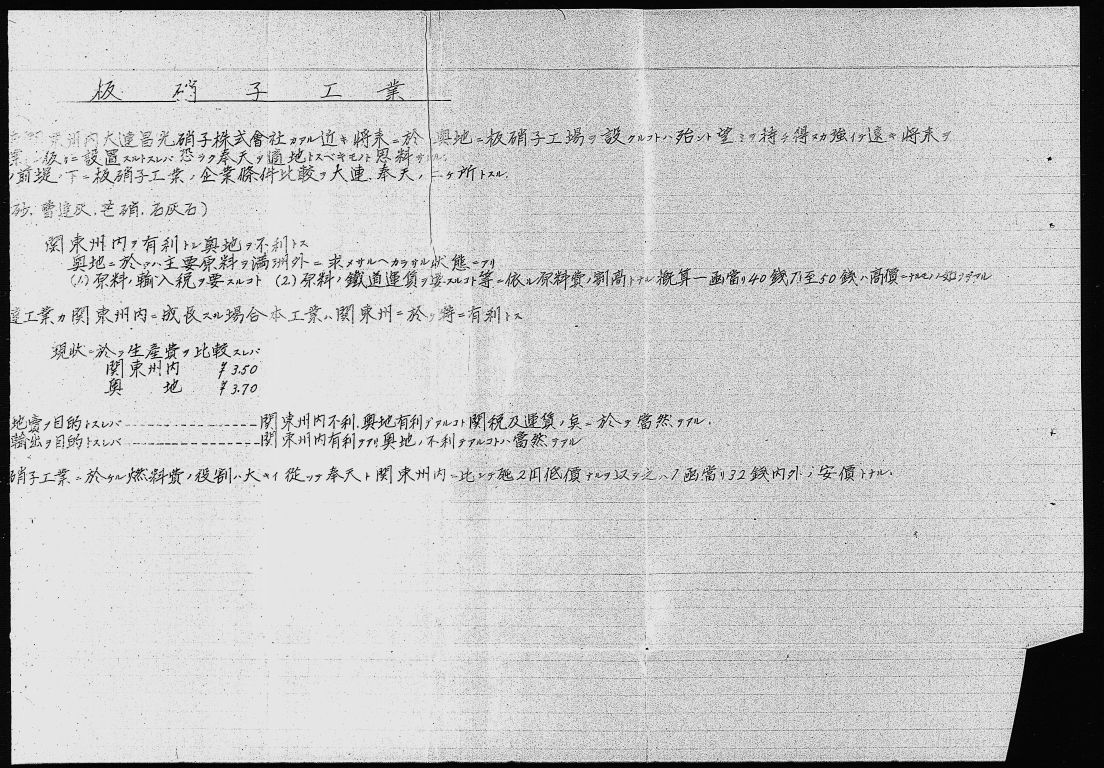 板硝子工業
東州内大連昌光硝子株式會社カアル近キ将来ニ於 奥地ニ板硝子工場ヲ設クルコトハ殆ント望ミヲ持チ得スカ強イテ遠キ将来ヲ
板 ニ設置スルトスレバ恐ラク奉天ヲ適地トスベキモノト思料サル
ノ前提ノ下ニ板硝子工業ノ企業條件比較ヲ大連、奉天ノ二ヶ所トスル.
砂、曹達灰、芒硝、石灰石)
関東州内ヲ有利トシ奥地ヲ不利トス
奥地ニ於テハ主要原料ヲ満洲外ニ求メサルヘカラサル状態ニアリ
(1)原料ノ輸入税ヲ要スルコト (2)原料ノ鐵道運賃ヲ要スルコト等ニ依ル原料費ノ割高トナル概算一函當リ40錢乃至50錢ハ高價ニナル
達工業カ関東州内ニ成長スル場合本工業ハ関東州ニ於テ特ニ有利トス
現状ニ於テ生産費ヲ比較スレバ
関東州内 ¥3.50
奥地 ¥3.70
地賣ヲ目的トスレバ-----------------関東州内不利、奥地有利デアルコト関税及運賃ノ点ニ於テ當然デアル.
輸出ヲ目的トスレバ-----------------関東州内有利デアリ奥地ノ不利デアルコトハ當然デアル
硝子工業ニ於ケル燃料費ノ役割ハ大キイ從ツテ奉天ト関東州内ニ比シテ 2円低價ナルヲ以テ之ハ1函當リ32錢内外ノ安價トナル.